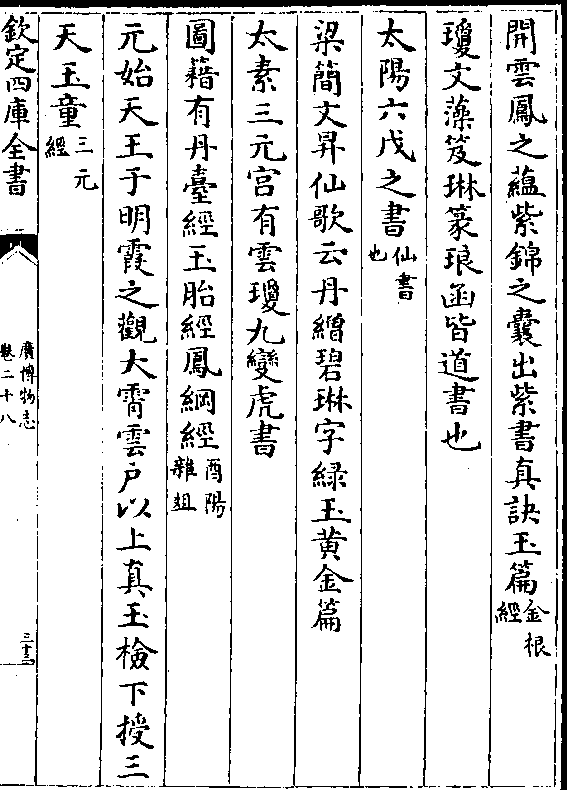 開雲鳳之蘊紫錦之囊出紫書真訣玉篇金根經
瓊文藻笈琳篆琅函皆道書也
太陽六戊之書仙書也
梁簡文昇仙歌云丹繒碧琳字綠玉黃金篇
太素三元宮有雲瓊九變虎書
圖籍有丹臺經玉胎經鳳綱經酉陽雜俎
元始天王于明霞之觀大霄雲户以上真玉檢下授三
天玉童三元經
欽定四庫全書
廣博物志
卷二十八
三十二